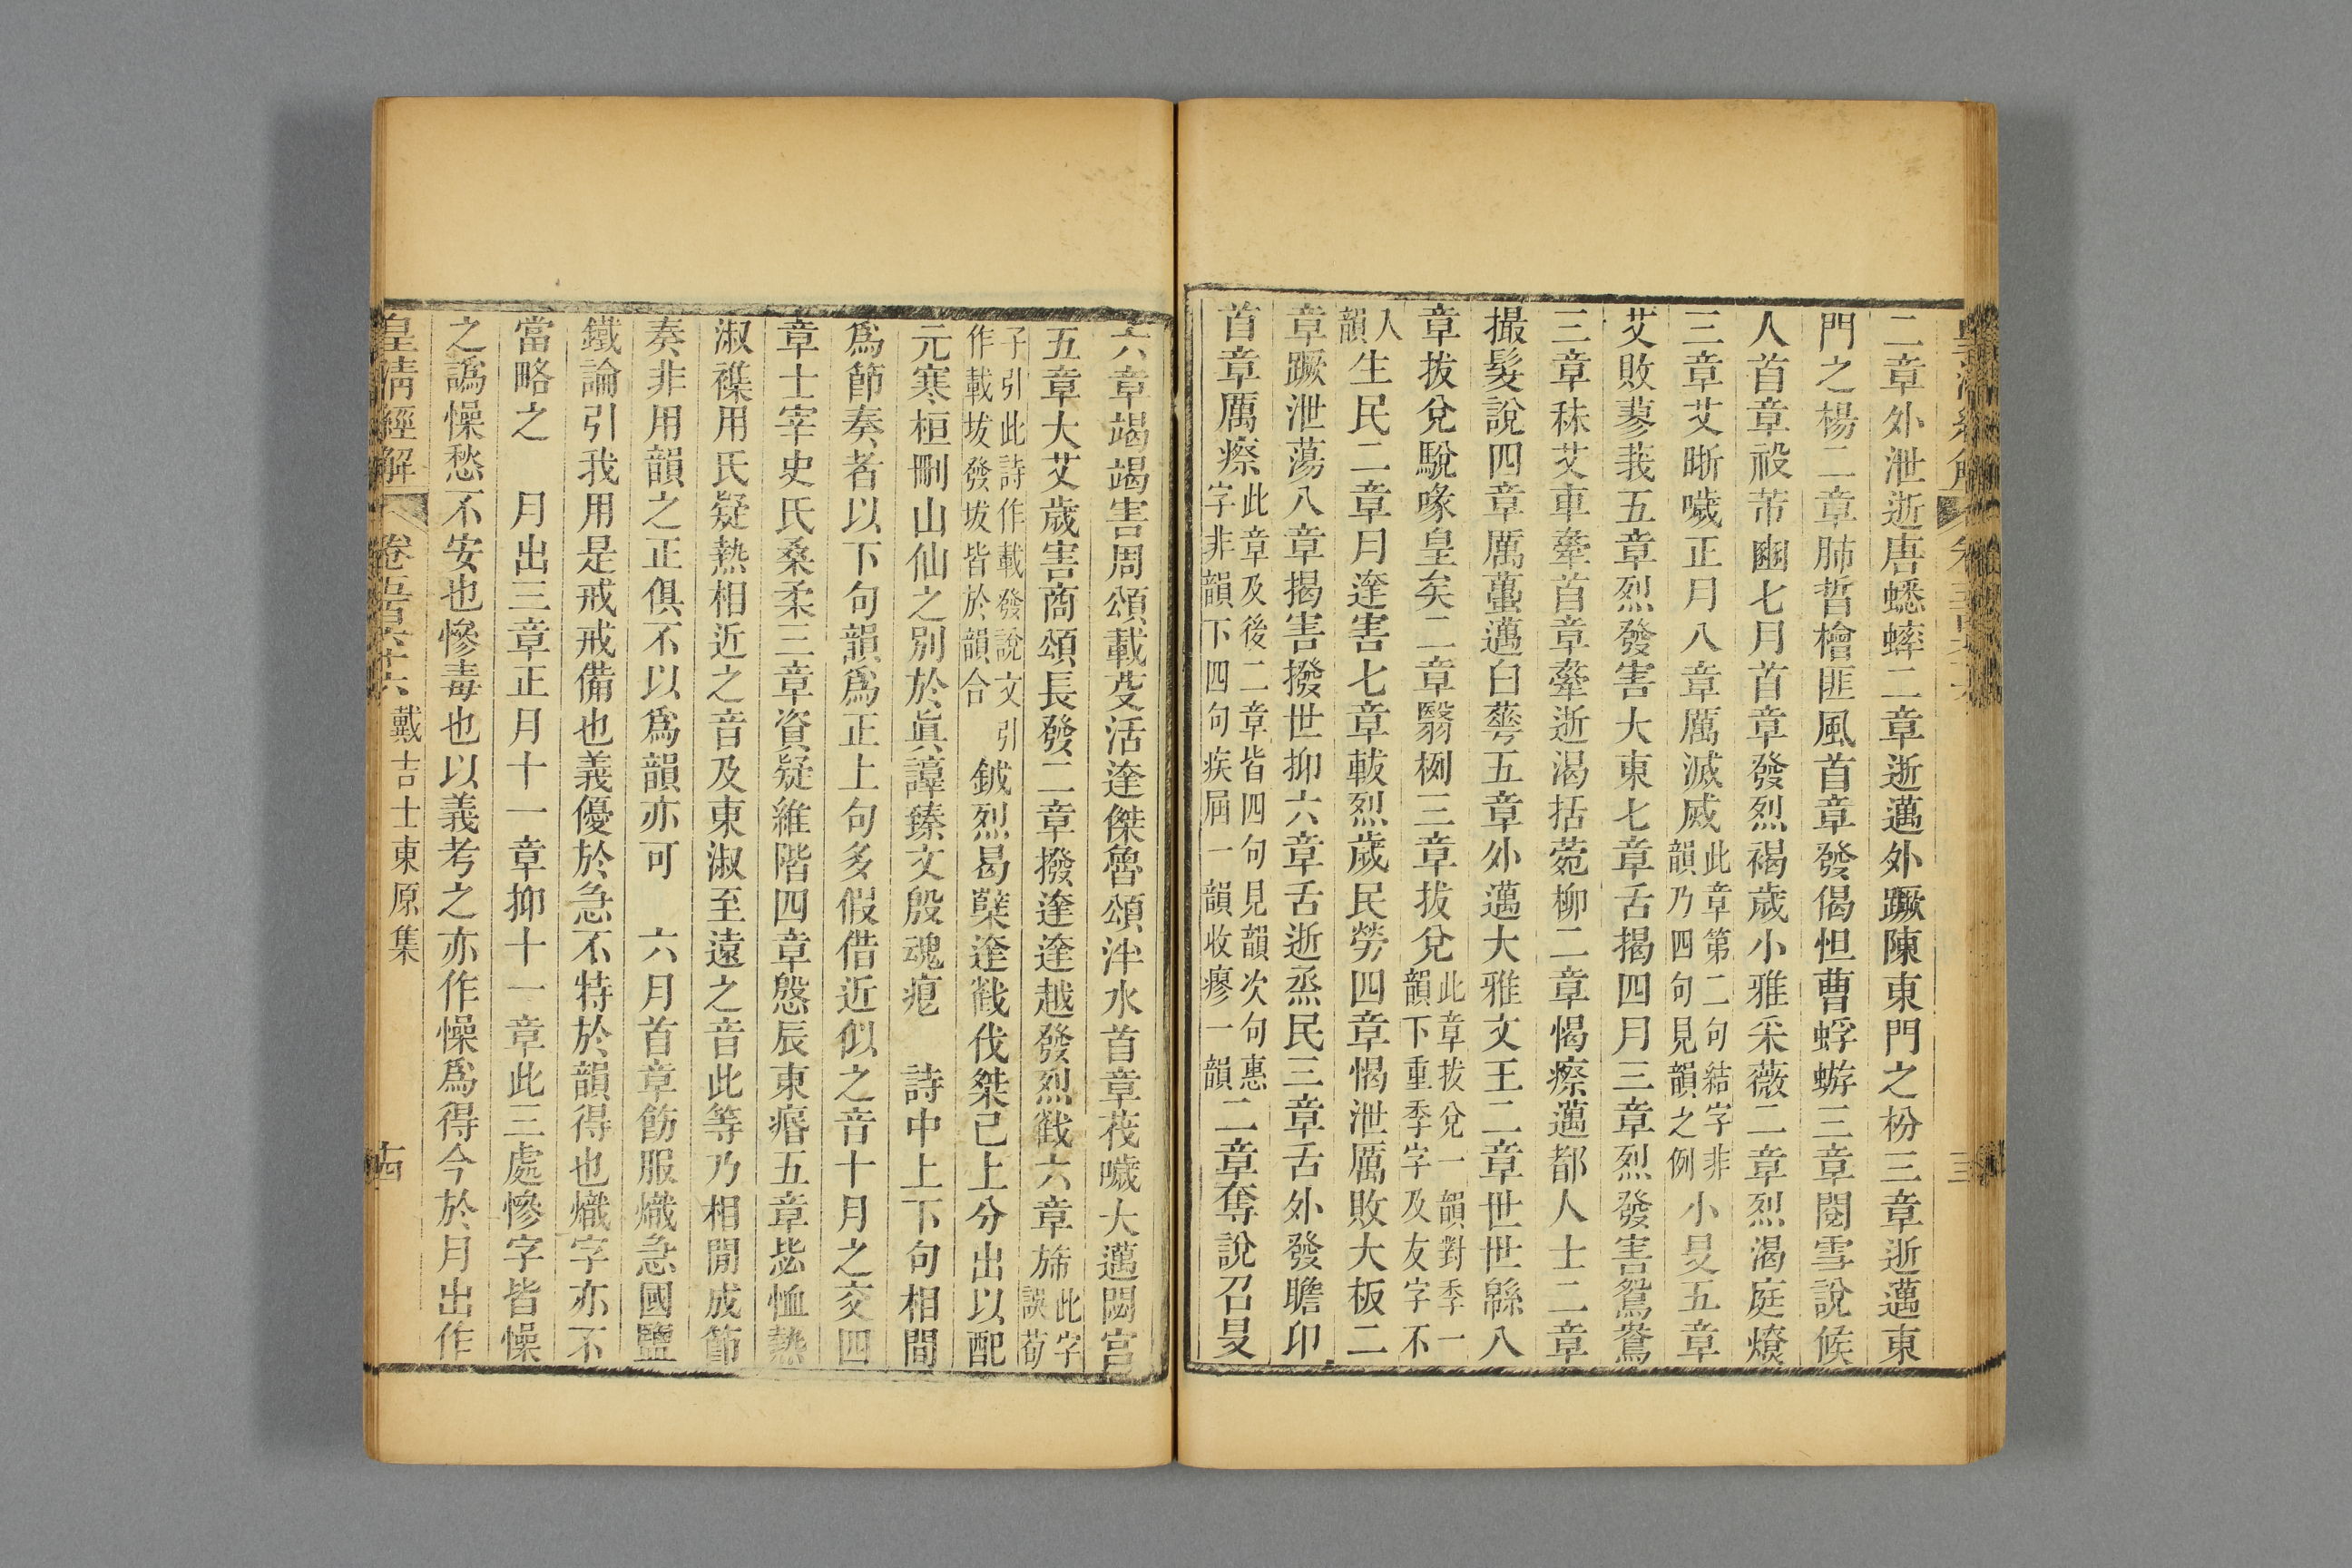 二章外泄逝唐蟋蟀二章逝邁外蹶陳東門之枌三章逝邁東
門之楊二章肺晢檜匪風首章發偈怛曹蜉蝣三章閱雪說候
人首章祋芾豳七月首章發烈褐歲小雅采薇二章烈渴庭燎
三章艾晣噦正月八章厲滅烕此章第二句結字非韻乃四句見韻之例小旻五章
艾敗蓼莪五章烈發害大東七章舌揭四月三章烈發害鴛鴦
三章秣艾車舝首章舝逝渴括菀柳二章愒瘵邁都人士二章
撮髮說四章厲蠆邁白華五章外邁大雅文王二章世世緜八
章拔兌駾喙皇矣二章翳栵三章拔兌此章拔兌一韻對季一韻下重季字及友字不
入韻生民二章月達害七章軷烈歲民勞四章愒泄厲敗大板二
章蹶泄蕩八章揭害撥世抑六章舌逝烝民三章舌外發瞻卬
首章厲瘵此章及後二章皆四句見韻次句惠字非韻下四句疾屆一韻收瘳一韻二章奪說召旻
六章竭竭害周頌載芟活達傑魯頌泮水首章茷噦大邁閟宮
五章大艾歲害商頌長發二章撥達達越發烈截六章旆此字誤荀
子引此詩作載發說文引作載坺發坺皆於韻合鉞烈曷櫱達截伐桀已上分出以配
元寒桓刪山仙之別於眞諄臻文殷魂痕　詩中上下句相間
爲節奏者以下句韻爲正上句多假借近似之音十月之交四
章士宰史氏桑柔三章資疑維階四章慇辰東瘏五章毖恤熱
淑襍用氏疑熱相近之音及東淑至遠之音此等乃相閒成節
奏非用韻之正俱不以爲韻亦可　六月首章飭服熾急國鹽
鐵論引我用是戒戒備也義優於急不特於韻得也熾字亦不
當略之　月出三章正月十一章抑十一章此三處慘字皆懆
之譌懆愁不安也慘毒也以義考之亦作懆爲得今於月出作
皇清經解　卷五百六十六　戴吉士東原集　十四